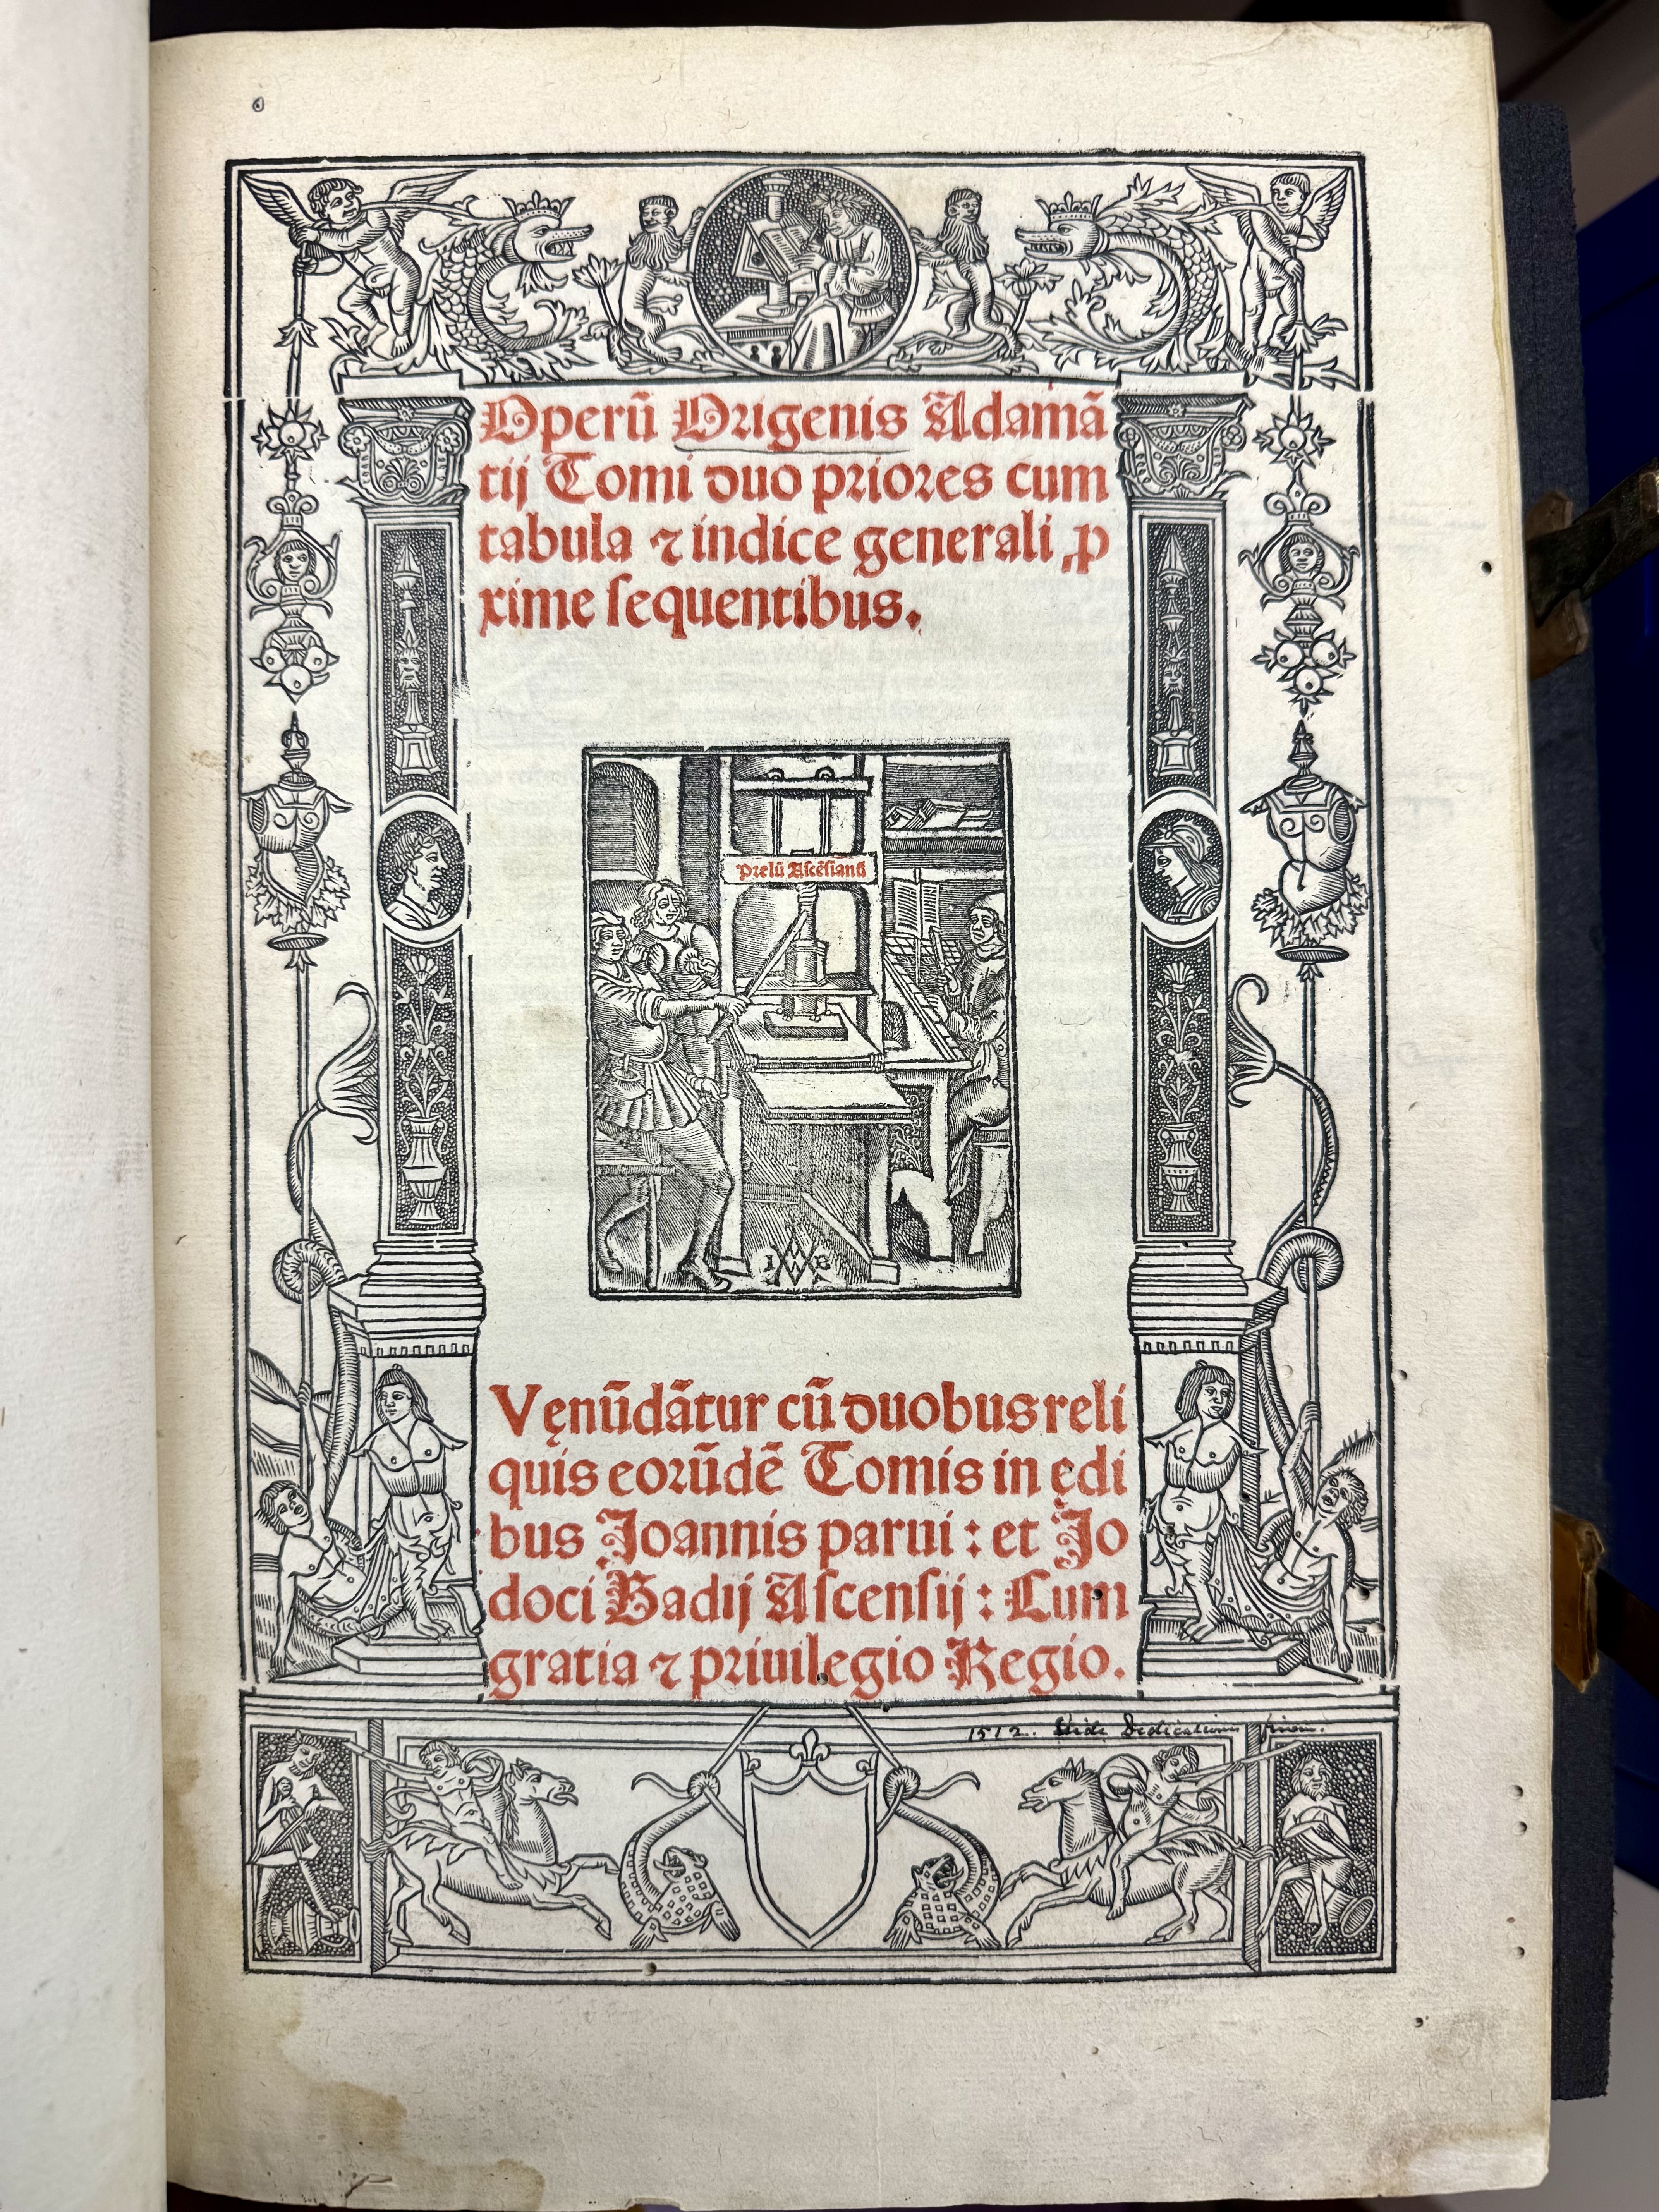 Operũ Origenis Adamã
tij Tomi duo priores cum
tabula ⁊ indice generali ꝓ
xime sequentibus.
Prelũ Ascẽsianũ
I B
Vęnũdãtur cũ duobus reli
quis eorũdẽ Tomis in ędi
bus Joannis parui : et Jo
doci Badij Ascensij : Cum
gratia ⁊ priuilegio Regio.
1512. Vide Dedicationis finem.